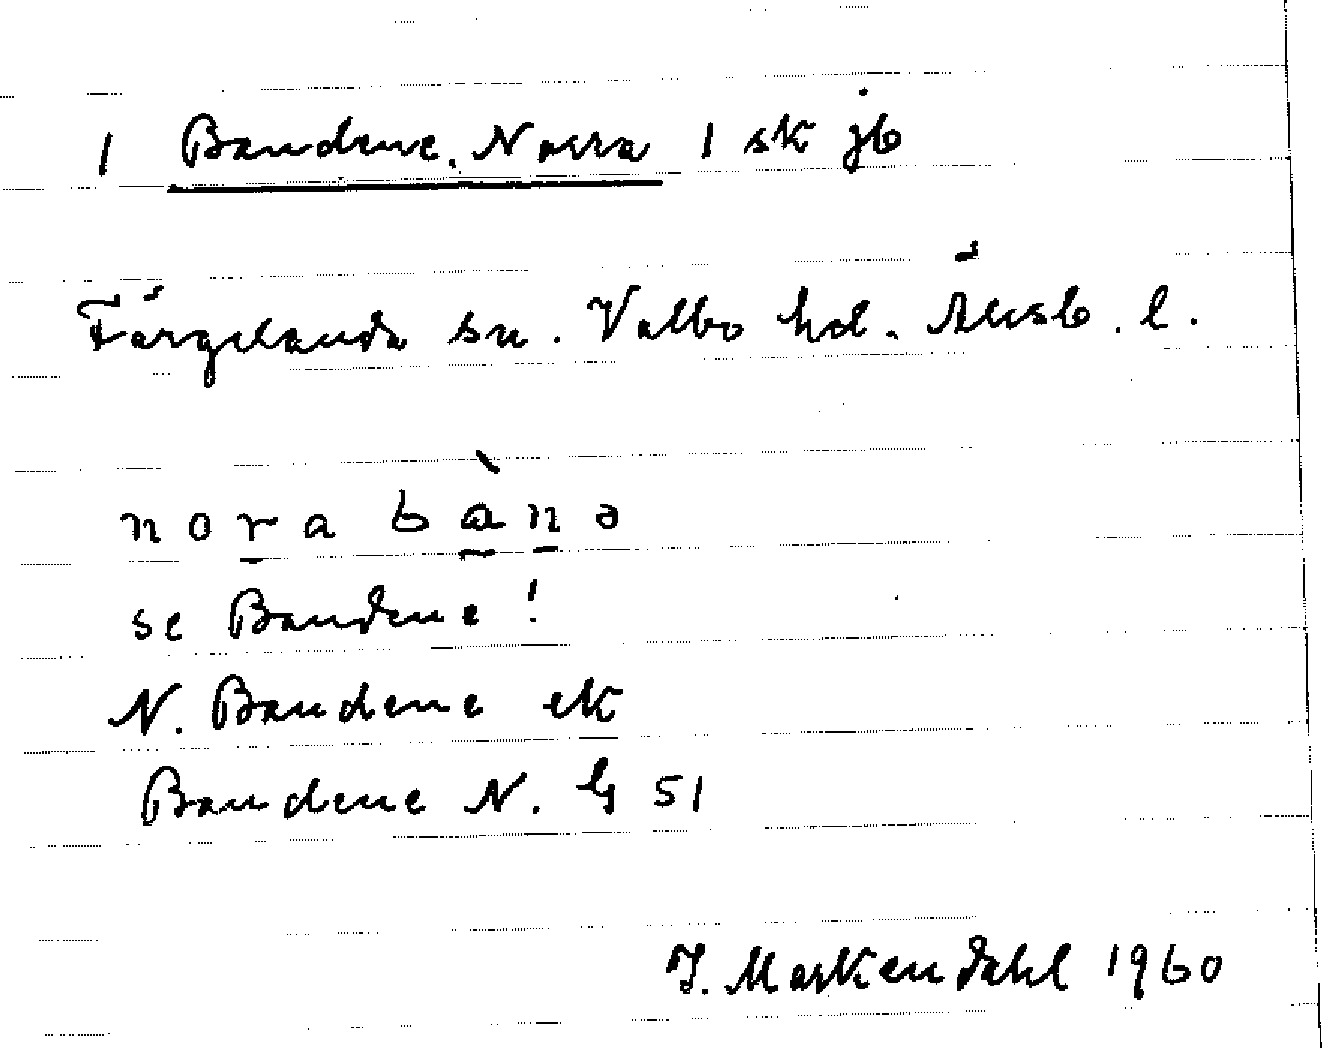 1 Bandene, Norra 1 sk jb
Färgelanda sn. Valbo hd. Älvsb. l.
nora bànə
se Bandene!
N. Bandene ek
Bandene N. G 51
J. Markendahl 1960